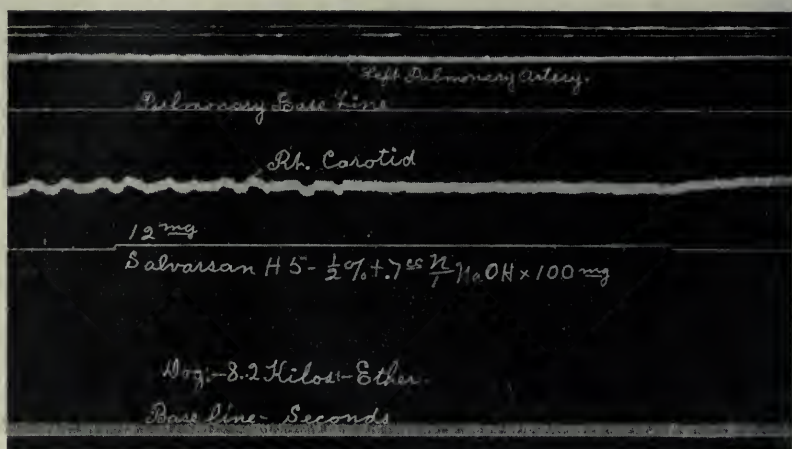 Left Pulmonary Artery.
Pulmonary Base Line
Rt. Carotid
12 mg
Salvarsan H5 - 1/2 % + .7 cc n/1 NaOH × 100 mg
Dog:- 8.2 Kilos:- Ether.
Base line - Seconds